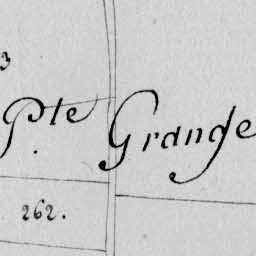 3
Pte Grande
262.